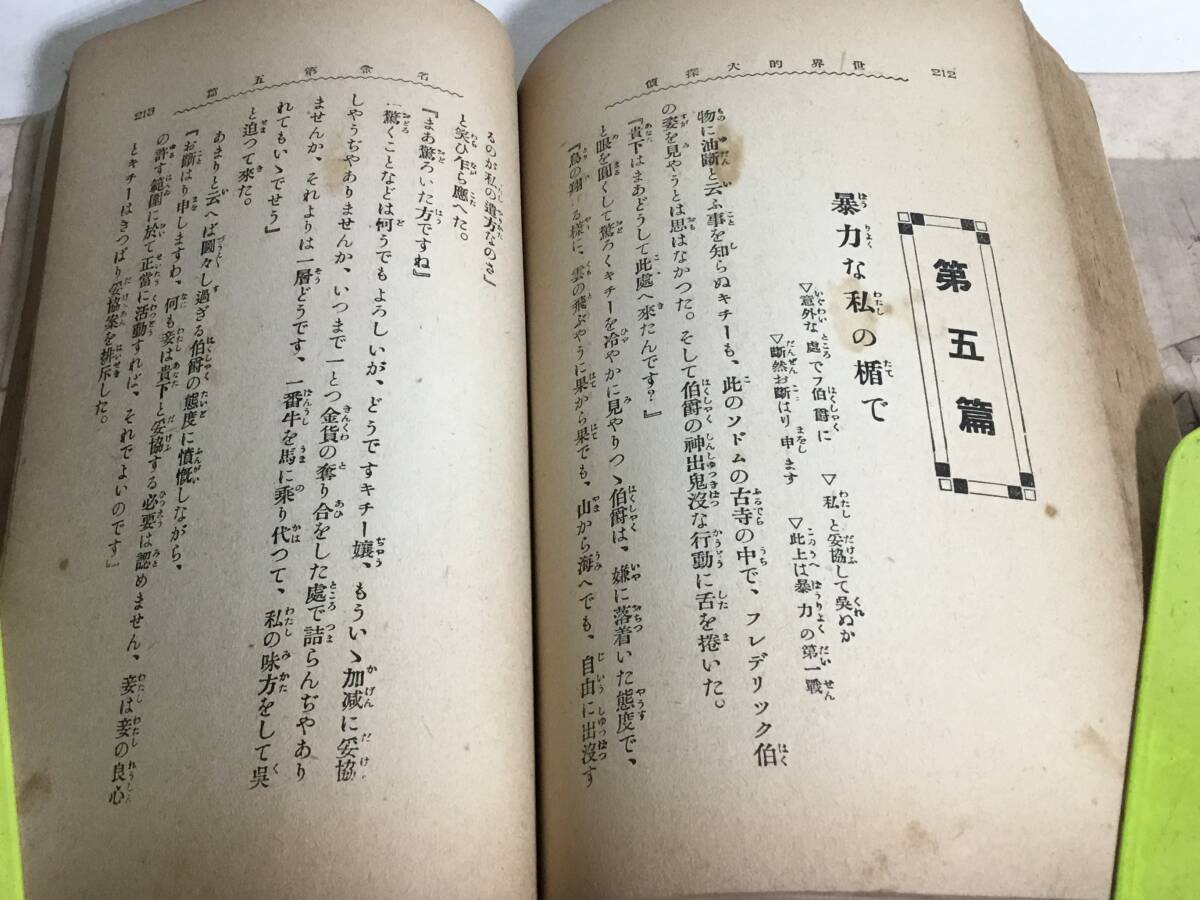 世界的大探偵
212
第五篇
暴力な私の楯で
▽意外な處でフ伯爵に ▽私と妥協して吳ぬか
▽斷然お斷はり申ます ▽此上は暴力の第一戰
物に油斷と云ふ事を知らぬキチーも、此のソドムの古寺の中で、フレデリツク伯
の姿を見やうとは思はなかつた。そして伯爵の神出鬼沒な行動に舌を捲いた。
『貴下はまあどうして此處へ來たんです?』
と眼を圓くして驚ろくキチーを冷やかに見やりつゝ伯爵は、嫌に落着いた態度で、
『鳥の翔ける樣に、雲の飛ぶやうに果から果でも、山から海へでも、自由に出沒す
名金第五篇
213
るのが私の遣方なのさ』
と笑ひ乍ら應へた。
『まあ驚ろいた方ですね』
『驚くことなどは何うでもよろしいが、どうですキチー孃、もういゝ加减に妥協
しやうぢやありませんか、いつまで一とつ金貨の奪り合をした處で詰らんぢやあり
ませんか、それよりは一層どうです、一番牛を馬に乘り代つて、私の味方をして吳
れてもいゝでせう』
と迫つて來た。
あまりと云へば圖々し過ぎる伯爵の態度に憤慨しながら、
『お斷はり申しますわ、何も妾は貴下と妥協する必要は認めません、妾は妾の良心
の許す範圍に於て正當に活動すれば、それでよいのです』
とキチーはきつぱり妥協案を排斥した。